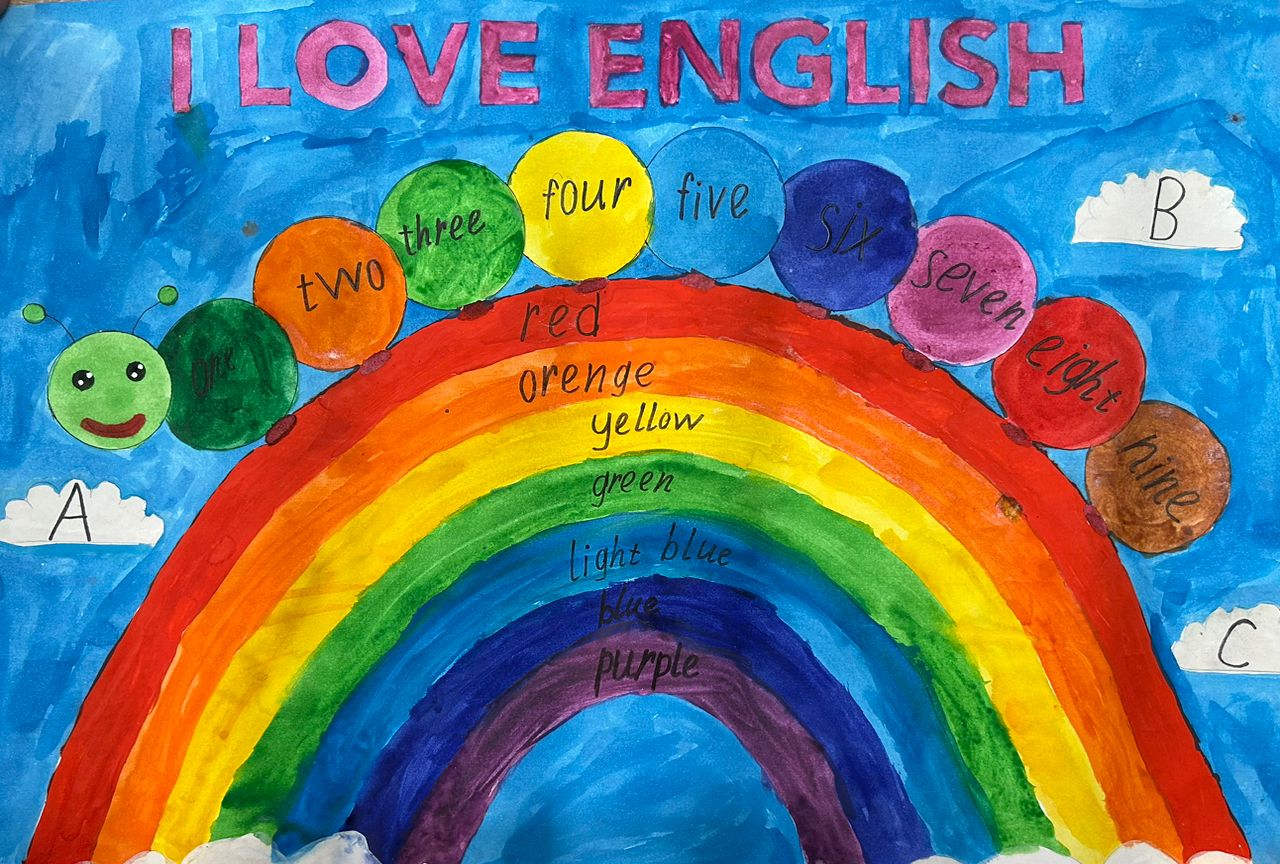 I LOVE ENGLISH
one
two
three
four
five
six
seven
eight
nine
A
B
C
red
orenge
yellow
green
light blue
blue
purple